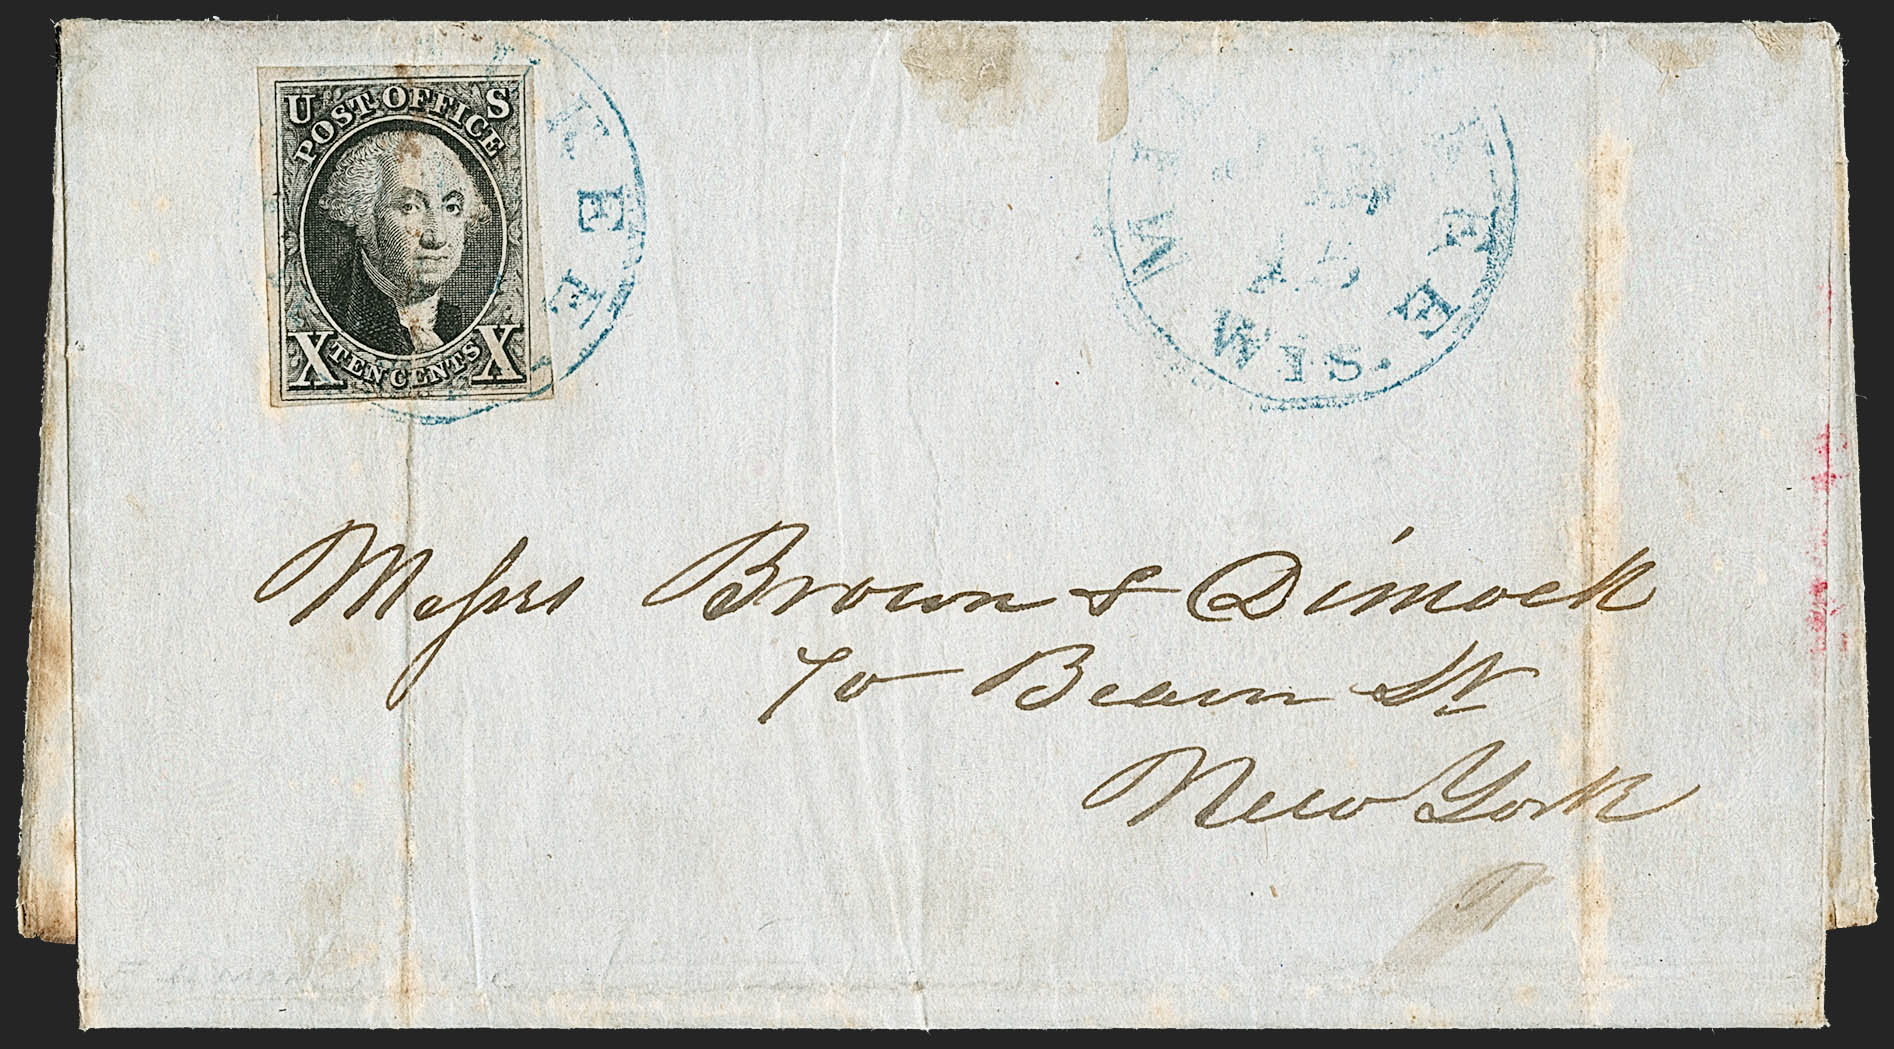 U S
POST OFFICE
X TEN CENTS X
KEE
WIS.
Messrs Brown & Dimock
70 Beaver St
New York